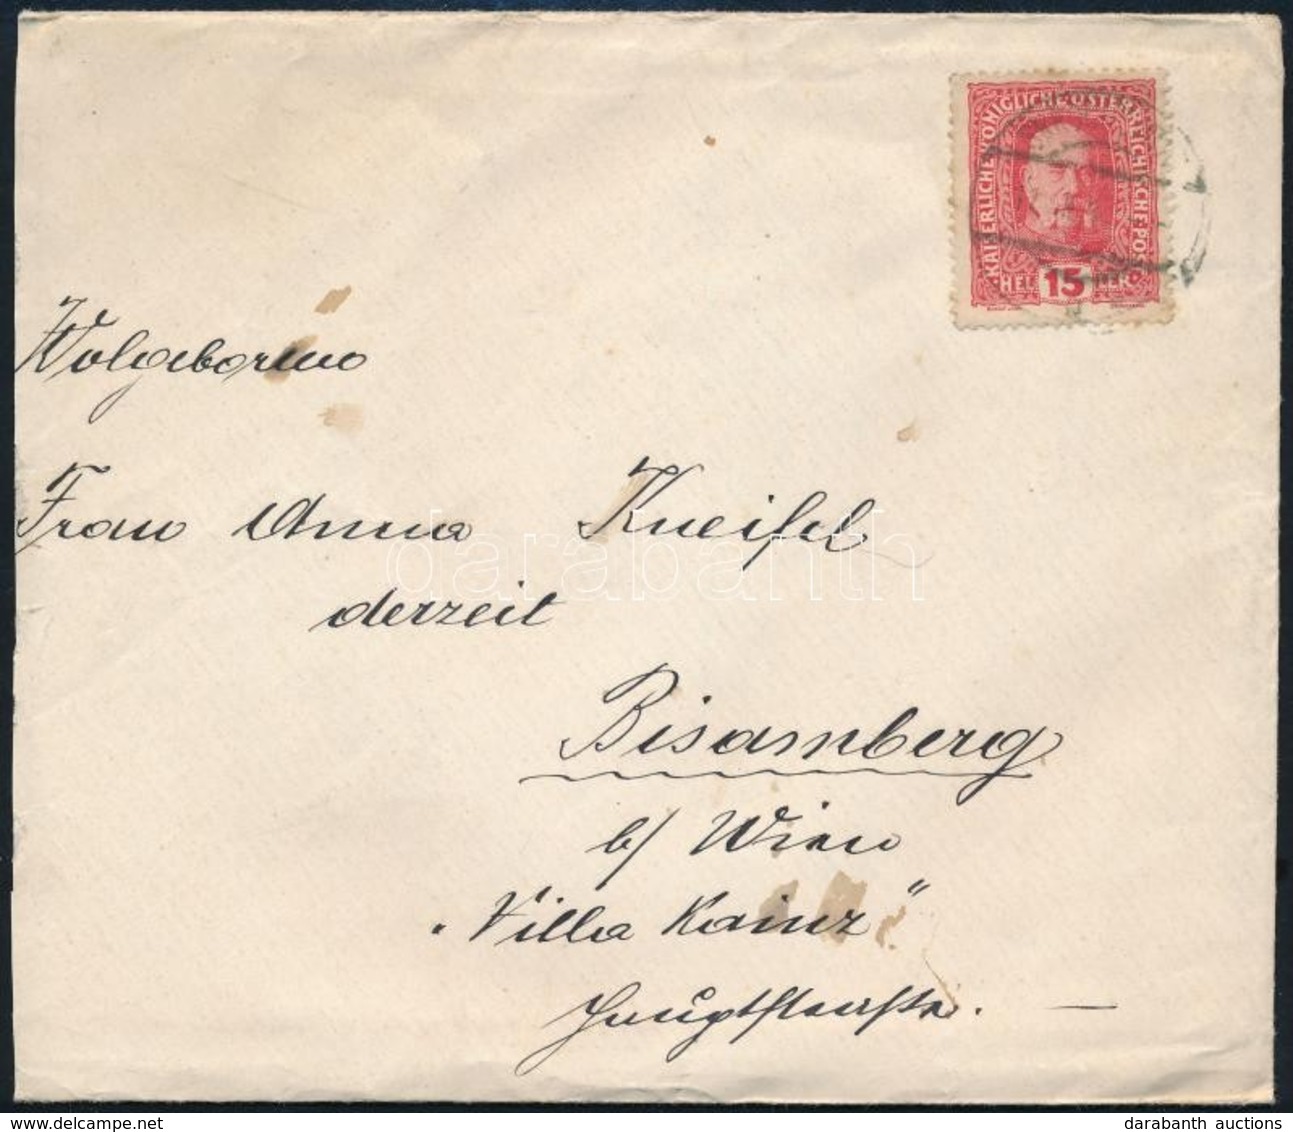 KAISERLICHE KÖNIGLICHE ÖSTERREICHISCHE POST
15
Wolgeboren
Frau Anna Kneifel
derzeit
Bisamberg
b/ Wien
„Villa Kainz"
Hauptstrasse. —
darabanth
darabanth auctions